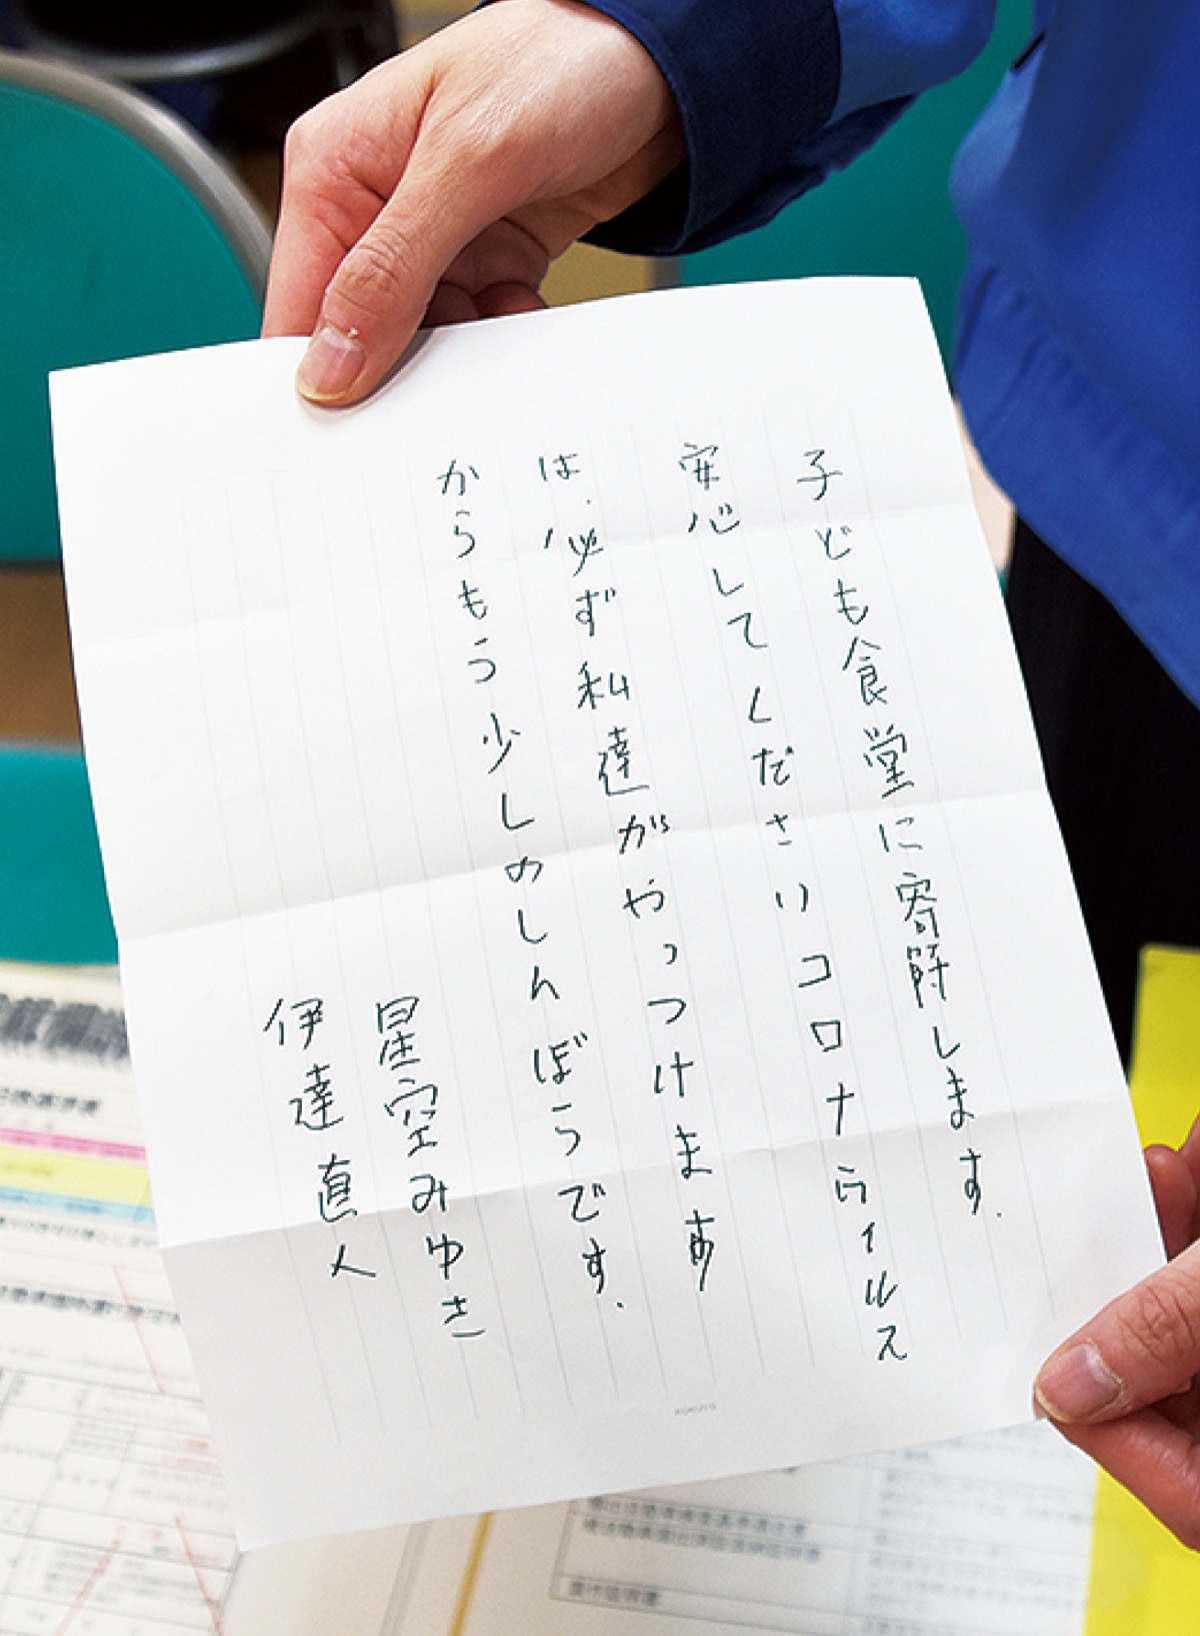 子ども食堂に寄附します。
安心してくださいコロナウィルス
は、必ず私達がやっつけます
からもう少しのしんぼうです。
星空みゆき
伊達直人
KOKUYO